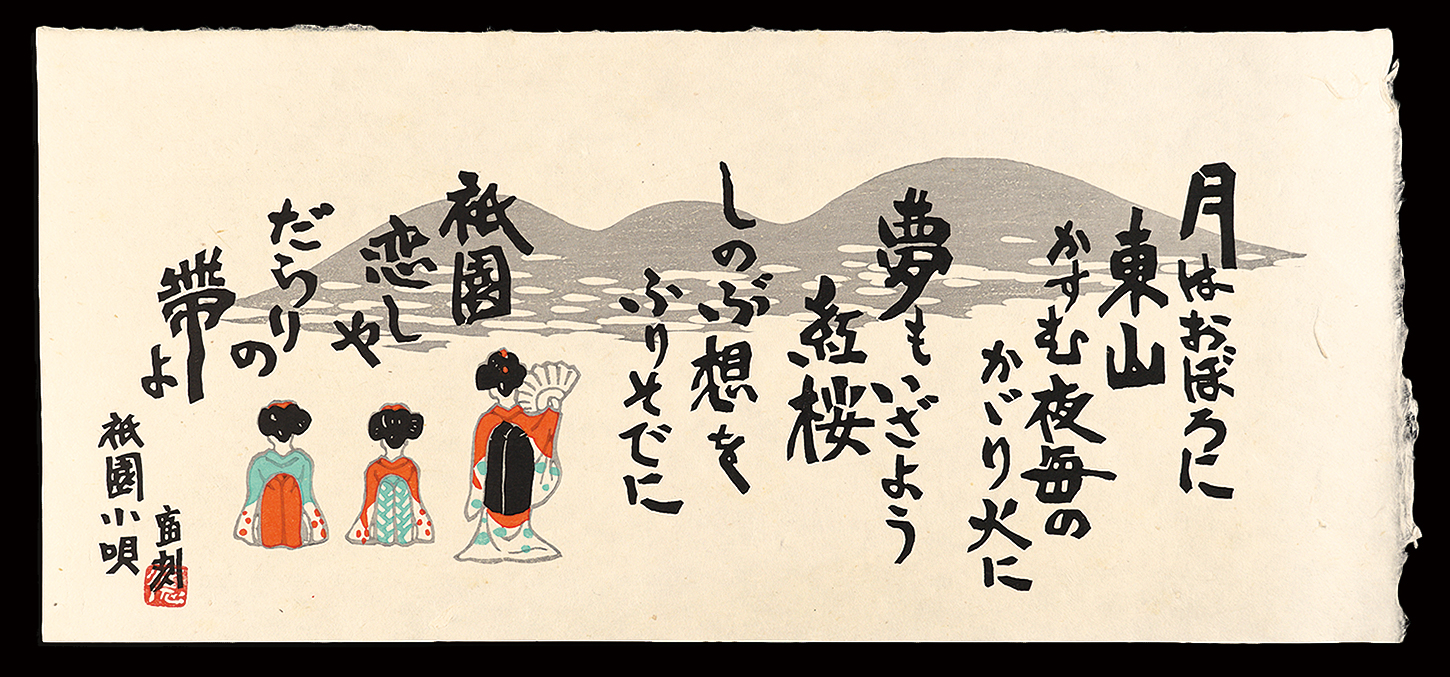 月はおぼろに
東山
かすむ夜毎の
かゞり火に
夢もいざよう
紅桜
しのぶ想を
ふりそでに
祇園
恋しや
だらりの
帯よ
祇園小唄